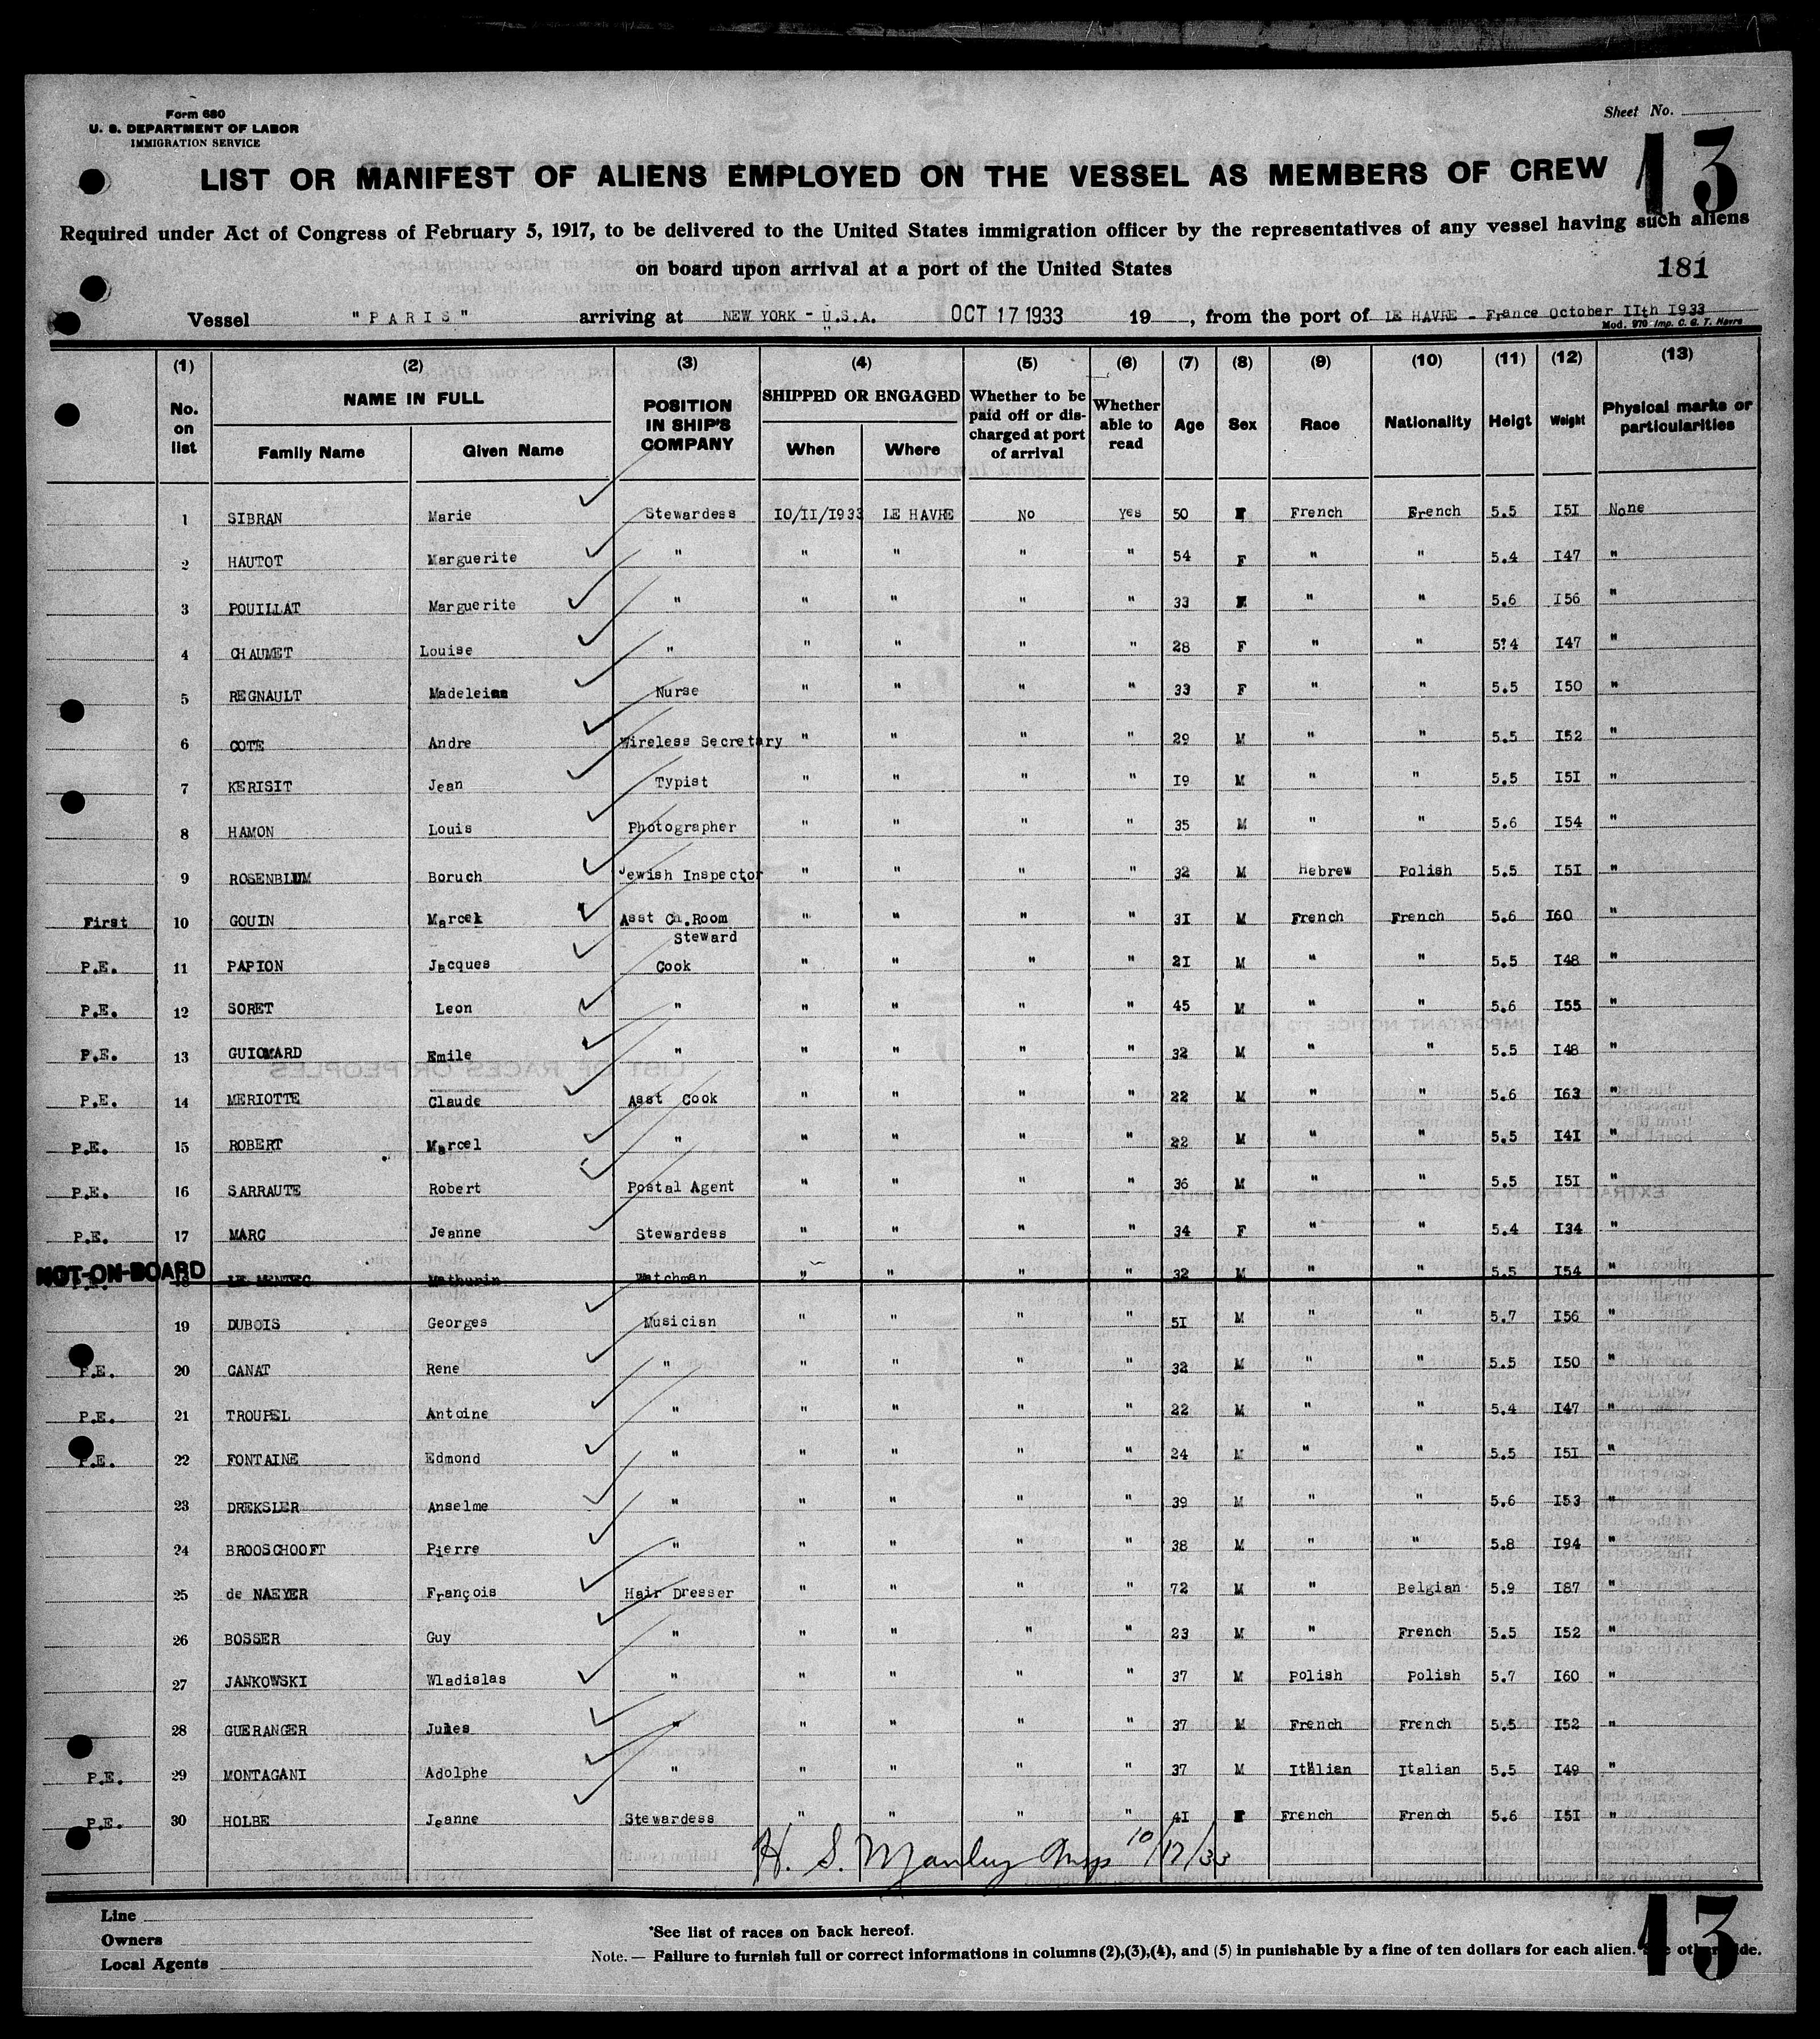 Form 680
U. S. DEPARTMENT OF LABOR
IMMIGRATION SERVICE
Sheet No.
13
LIST OR MANIFEST OF ALIENS EMPLOYED ON THE VESSEL AS MEMBERS OF CREW
Required under Act of Congress of February 5, 1917, to be delivered to the United States immigration officer by the representatives of any vessel having such aliens
on board upon arrival at a port of the United States
181
Vessel "PARIS" arriving at NEW YORK - U.S.A. OCT 17 1933 19 , from the port of LE HAVRE - France October IIth 1933
Mod. 970 Imp. C. G. T. Havre
(1) (2) (3) (4) (5) (6) (7) (8) (9) (10) (11) (12) (13)
No. on list NAME IN FULL Family Name Given Name POSITION IN SHIP'S COMPANY SHIPPED OR ENGAGED When Where Whether to be paid off or discharged at port of arrival Whether able to read Age Sex Race Nationality Heigt Weight Physical marks or particularities
1 SIBRAN Marie Stewardess IO/II/I933 LE HAVRE No Yes 50 F French French 5.5 I5I None
2 HAUTOT Marguerite " " " " " 54 F " " 5.4 I47 "
3 POUILLAT Marguerite " " " " " 33 F " " 5.6 I56 "
4 CHAUMET Louise " " " " " 28 F " " 5?4 I47 "
5 REGNAULT Madeleine Nurse " " " " 33 F " " 5.5 I50 "
6 COTE Andre Wireless Secretary " " " " 29 M " " 5.5 I52 "
7 KERISIT Jean Typist " " " " I9 M " " 5.5 I5I "
8 HAMON Louis Photographer " " " " 35 M " " 5.6 I54 "
9 ROSENBLUM Boruch Jewish Inspector " " " " 32 M Hebrew Polish 5.5 I5I "
First 10 GOUIN Marcel Asst Ch.Room Steward " " " " 3I M French French 5.6 I60 "
P.E. 11 PAPION Jacques Cook " " " " 2I M " " 5.5 I48 "
P.E. 12 SORET Leon " " " " " 45 M " " 5.6 I55 "
P.E. 13 GUIOMARD Emile " " " " " 32 M " " 5.5 I48 "
P.E. 14 MERIOTTE Claude Asst Cook " " " " 22 M " " 5.6 I63 "
P.E. 15 ROBERT Marcel " " " " " 22 M " " 5.5 I4I "
P.E. 16 SARRAUTE Robert Postal Agent " " " " 36 M " " 5.5 I5I "
P.E. 17 MARC Jeanne Stewardess " " " " 34 F " " 5.4 I34 "
NOT-ON-BOARD P.E. 18 LE MENTEC Mathurin Watchman " " " " 32 M " " 5.5 I54 "
19 DUBOIS Georges Musician " " " " 5I M " " 5.7 I56 "
P.E. 20 CANAT Rene " " " " " 32 M " " 5.5 I50 "
P.E. 21 TROUPEL Antoine " " " " " 22 M " " 5.4 I47 "
P.E. 22 FONTAINE Edmond " " " " " 24 M " " 5.5 I5I "
23 DREKSLER Anselme " " " " " 39 M " " 5.6 I53 "
24 BROOSCHOOFT Pierre " " " " " 38 M " " 5.8 I94 "
25 de NAEYER François Hair Dresser " " " " 72 M " Belgian 5.9 I87 "
26 BOSSER Guy " " " " " 23 M " French 5.5 I52 "
27 JANKOWSKI Wladislas " " " " " 37 M Polish Polish 5.7 I60 "
28 GUERANGER Jules " " " " " 37 M French French 5.5 I52 "
P.E. 29 MONTAGANI Adolphe " " " " " 37 M Italian Italian 5.5 I49 "
P.E. 30 HOLBE Jeanne Stewardess " " " " 4I F French French 5.6 I5I "
H. S. Manley Insp 10/17/33
Line
Owners
Local Agents
*See list of races on back hereof.
Note. — Failure to furnish full or correct informations in columns (2),(3),(4), and (5) in punishable by a fine of ten dollars for each alien. See other side.
13